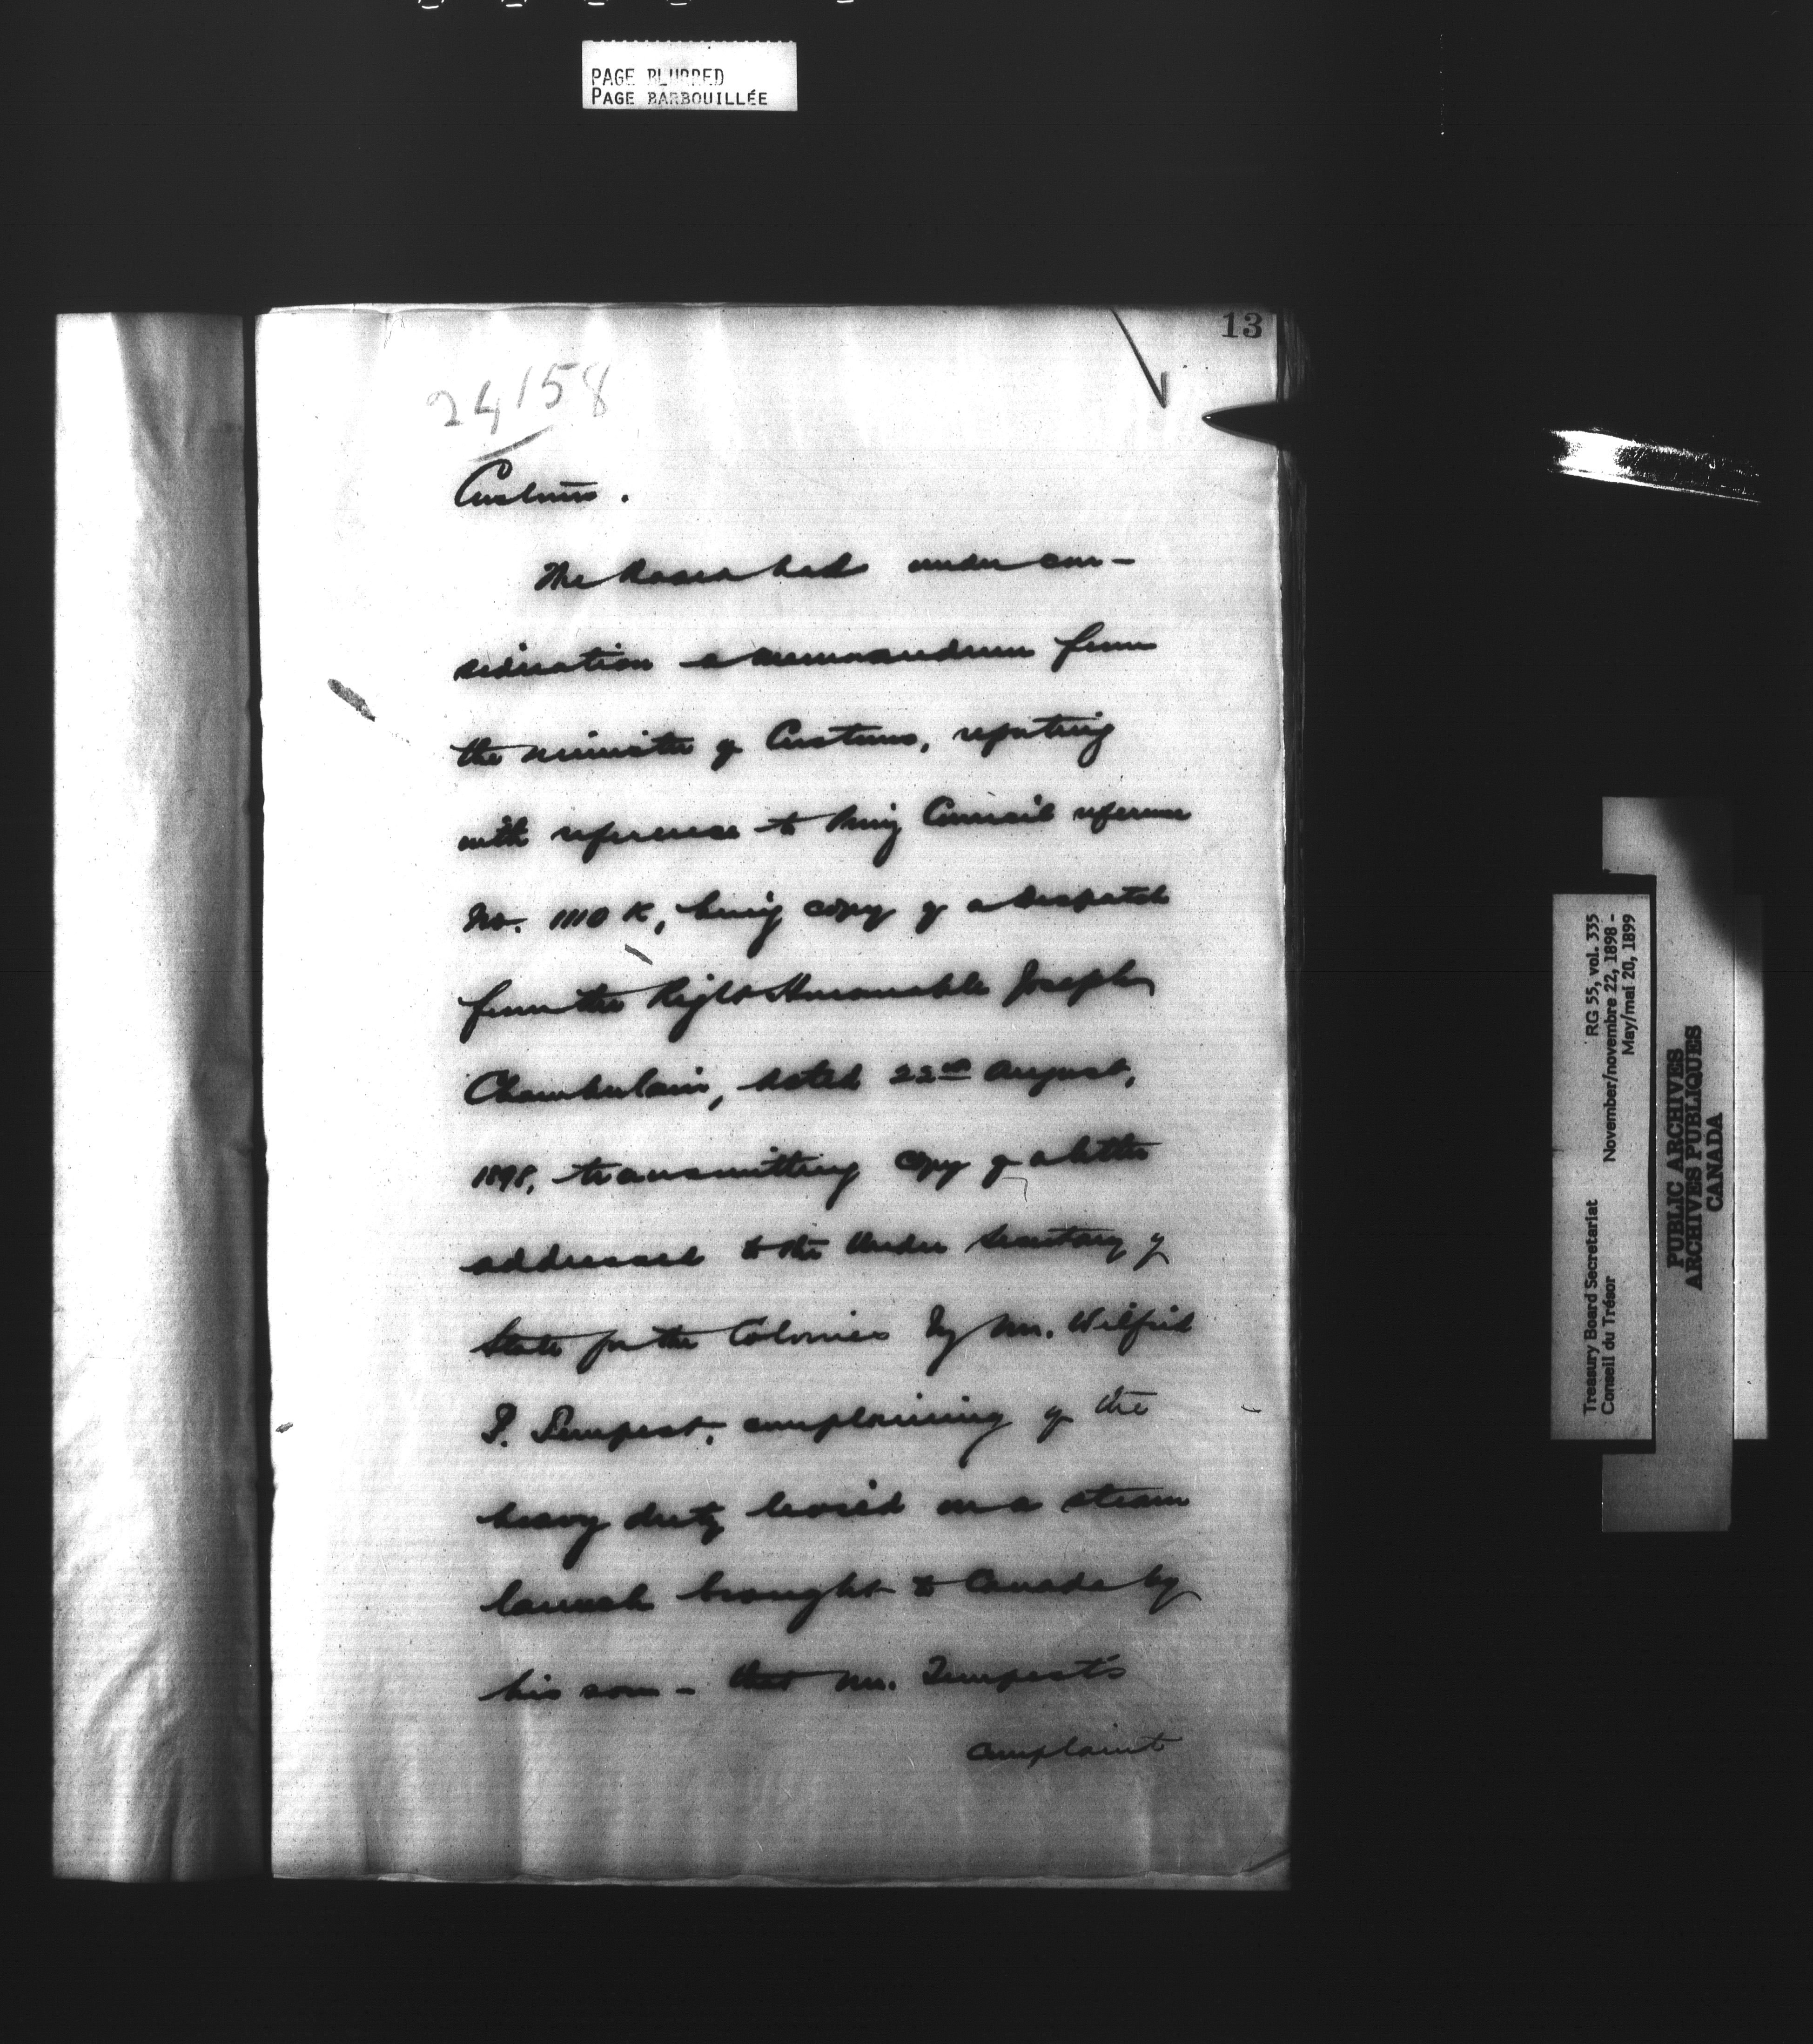 PAGE BLURRED
PAGE BARBOUILLÉE
13
24158
Customs.
The Board had under con-
sideration a memorandum from
the Minister of Customs, reporting
with reference to Privy Council reference
No. 1110 K, being copy of a Despatch
from the Right Honourable Joseph
Chamberlain, dated 22nd August,
1898, transmitting copy of a letter
addressed to the Under Secretary of
State for the Colonies by Mr. Wilfrid
T. Tempest, complaining of the
heavy duty levied on a steam
launch brought to Canada by
his son - that Mr. Tempest's
complaint
Treasury Board Secretariat RG 55, vol. 335
Conseil du Trésor November/novembre 22, 1898 -
May/mai 20, 1899
PUBLIC ARCHIVES
ARCHIVES PUBLIQUES
CANADA